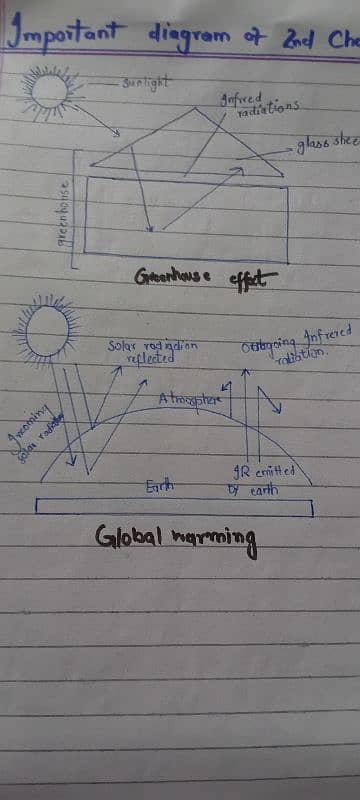 Important diagram of 2nd Cha
sunlight
Infred
radiations
glass shee
greenhouse
Greenhouse effect
Solar radiation
reflected
Outgoing Infrered
radiation.
Incoming
solar radiation
Atmosphere
Earth
IR emitted
by earth
Global warming